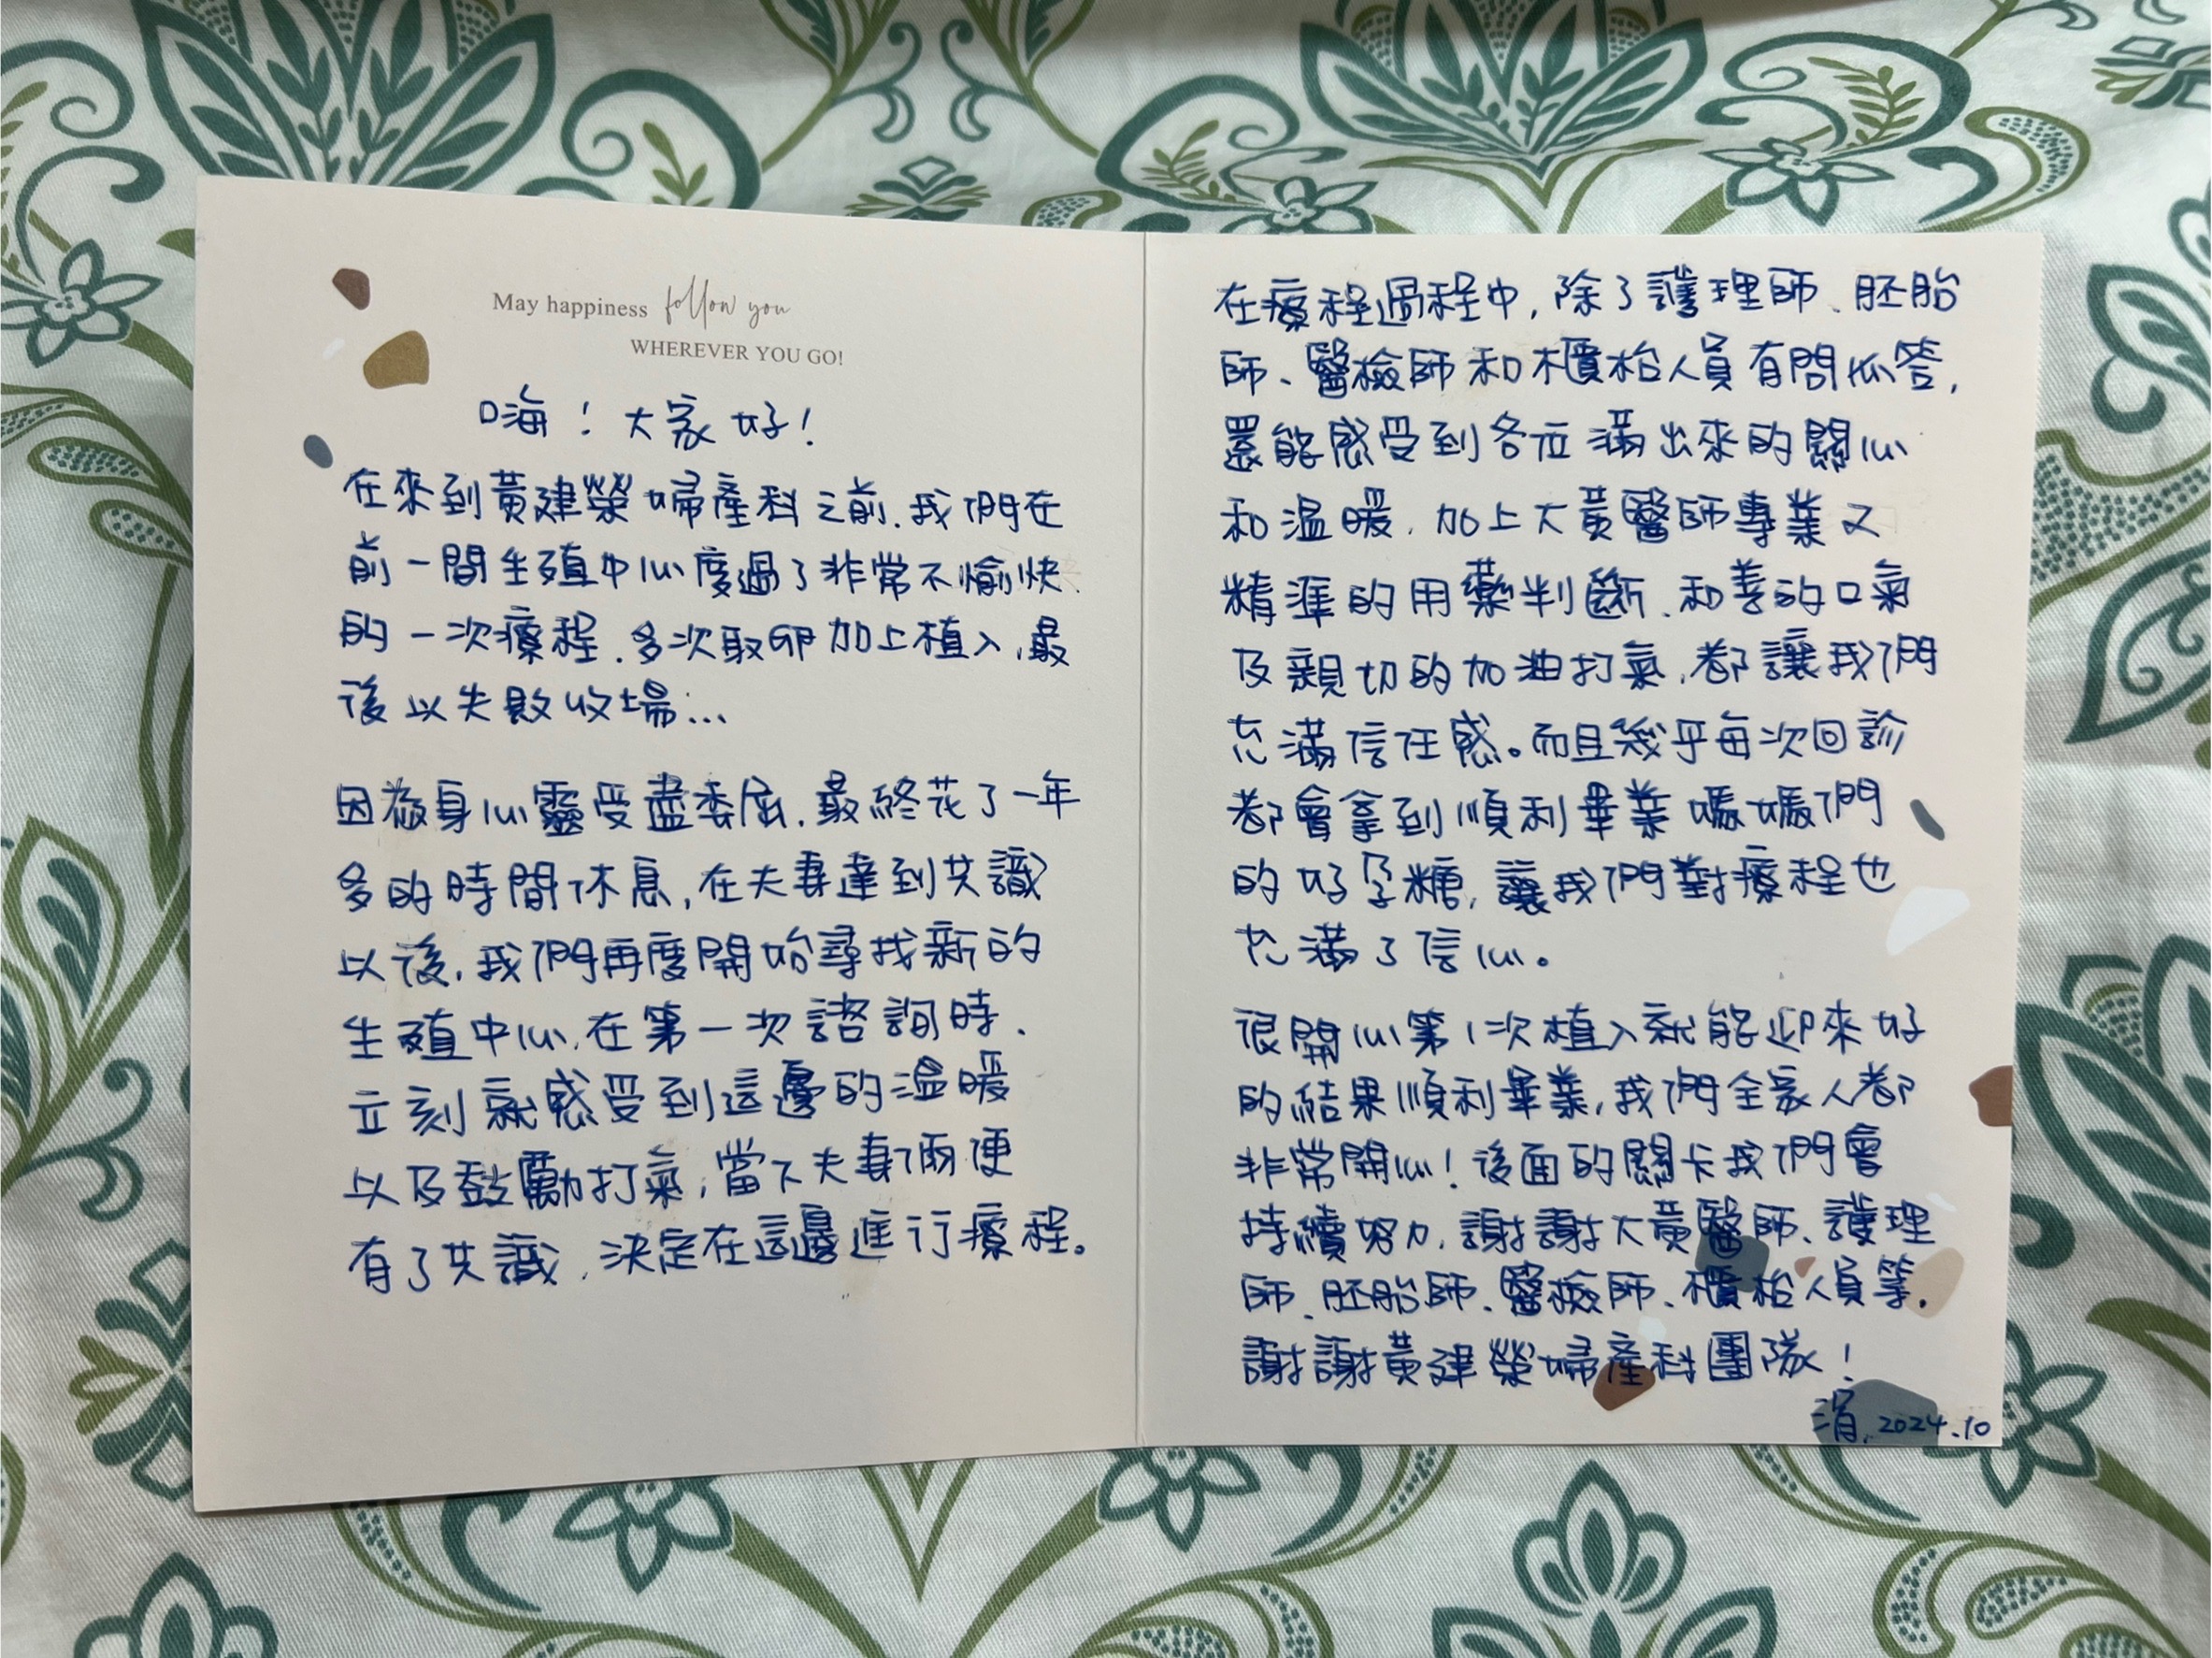 May happiness follow you
WHEREVER YOU GO!
嗨！大家好！
在來到黃建榮婦產科之前，我們在
前一間生殖中心度過了非常不愉快
的一次療程，多次取卵加上植入，最
後以失敗收場…
因為身心靈受盡委屈，最終花了一年
多的時間休息，在夫妻達到共識
以後，我們再度開始尋找新的
生殖中心，在第一次諮詢時，
立刻就感受到這邊的溫暖
以及鼓勵打氣，當下夫妻倆便
有了共識，決定在這邊進行療程。
在療程過程中，除了護理師、胚胎
師、醫檢師和櫃枱人員有問必答，
還能感受到各位滿出來的關心
和溫暖，加上大黃醫師專業又
精準的用藥判斷、和善的口氣
及親切的加油打氣，都讓我們
充滿信任感。而且幾乎每次回診
都會拿到順利畢業媽媽們
的好孕糖，讓我們對療程也
充滿了信心。
很開心第1次植入就能迎來好
的結果順利畢業，我們全家人都
非常開心！後面的關卡我們會
持續努力，謝謝大黃醫師、護理
師、胚胎師、醫檢師、櫃枱人員等，
謝謝黃建榮婦產科團隊！
涓，2024.10